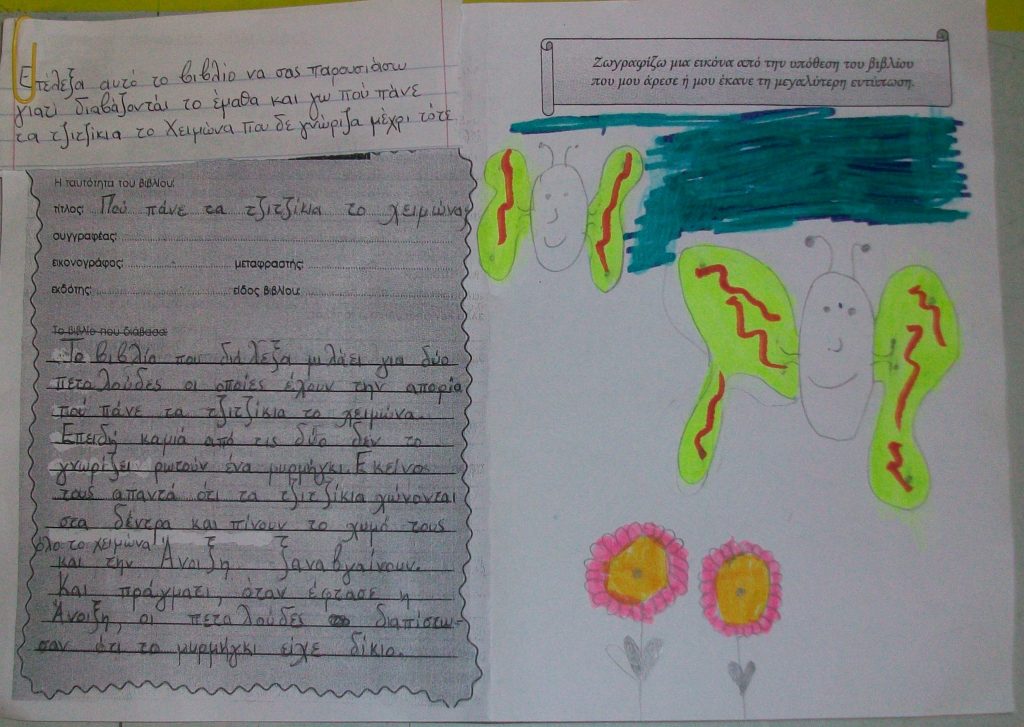 Επέλεξα αυτό το βιβλίο να σας παρουσιάσω
γιατί διαβάζονται το έμαθα και γω πού πάνε
τα τζιτζίκια το Χειμώνα που δε γνώριζα μέχρι τότε
Η ταυτότητα του βιβλίου:
τίτλος: Πού πάνε τα τζιτζίκια το χειμώνα;
συγγραφέας:
εικονογράφος: μεταφραστής:
εκδότης: είδος βιβλίου:
Το βιβλίο που διάβασα:
Το βιβλίο που διάλεξα μιλάει για δύο
πεταλούδες οι οποίες έχουν την απορία
πού πάνε τα τζιτζίκια το χειμώνα.
Επειδή καμιά από τις δύο δεν το
γνωρίζει ρωτούν ένα μυρμήγκι. Εκείνος
τους απαντά ότι τα τζιτζίκια χώνονται
στα δέντρα και πίνουν το χυμό τους
όλο το χειμώνα
και την Άνοιξη ξαναβγαίνουν.
Και πράγματι, όταν έφτασε η
Άνοιξη, οι πεταλούδες διαπίστω-
σαν ότι το μυρμήγκι είχε δίκιο.
Ζωγραφίζω μια εικόνα από την υπόθεση του βιβλίου
που μου άρεσε ή μου έκανε τη μεγαλύτερη εντύπωση.